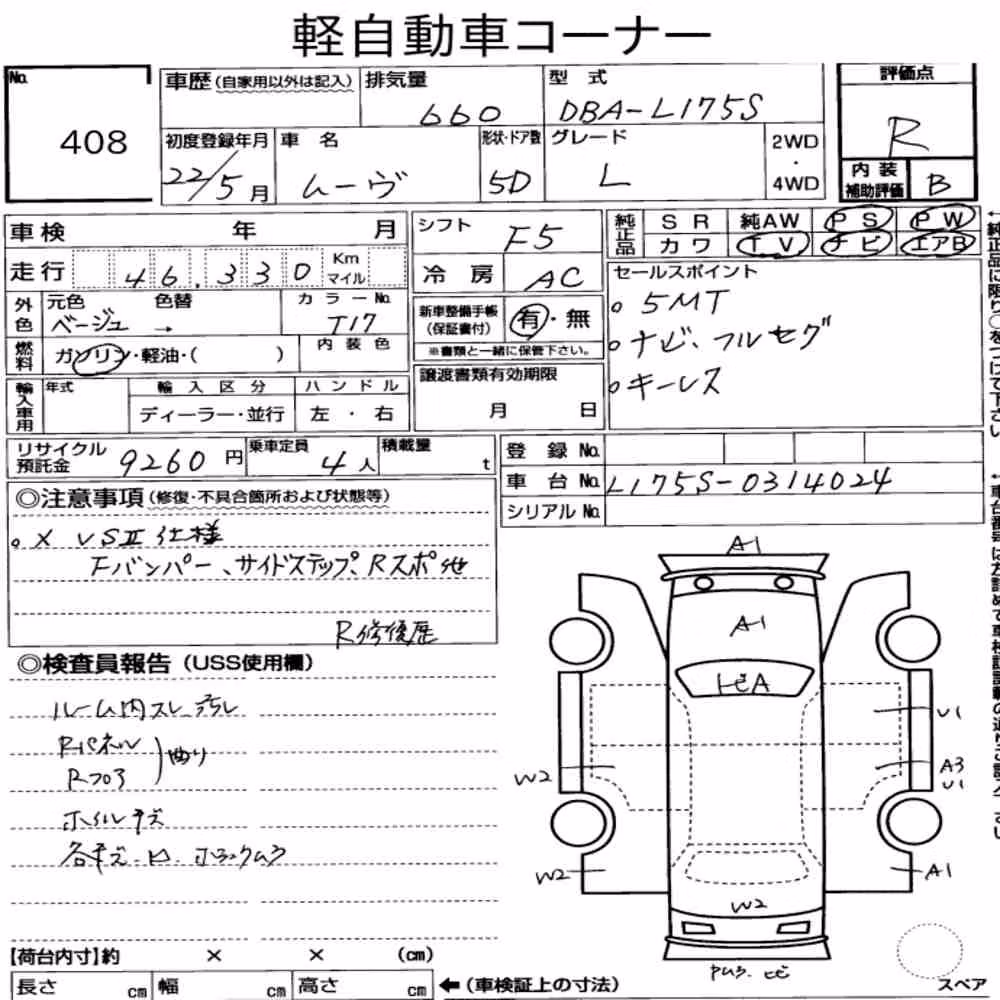 軽自動車コーナー
No. 408
車歴 (自家用以外は記入)
排気量 660
型式 DBA-L175S
評価点 R
初度登録年月 22/5月
車名 ムーヴ
形状・ドア数 5D
グレード L
2WD・4WD
内装補助評価 B
車検 年 月
シフト F5
純正品 SR 純AW PS PW
カワ TV ナビ エアB
走行 46,330 Km マイル
冷房 AC
セールスポイント
○5MT
○ナビ、フルセグ
○キーレス
外色 元色 ベージュ → 色替
カラーNo. T17
新車整備手帳 (保証書付) 有・無
※書類と一緒に保管下さい。
燃料 ガソリン・軽油・( )
内装色
譲渡書類有効期限
月 日
輸入車用 年式 輸入区分 ハンドル
ディーラー・並行 左・右
リサイクル預託金 9260円
乗車定員 4人
積載量 t
登録No.
車台No. L175S-0314024
シリアルNo.
◎注意事項 (修復・不具合箇所および状態等)
○X VSⅡ仕様
Fバンパー、サイドステップ、Rスポ他
R修復歴
◎検査員報告 (USS使用欄)
ルーム内スレ、汚レ
Rパネル
Rフロア
曲り
ホイルキズ
各キズ・凹
A-1
A-1
トビA
U1
A3
U1
W2
W2
A1
W2
【荷台内寸】約 × × (cm)
長さ cm 幅 cm 高さ cm
←(車検証上の寸法)
スペア
←純正品に限り○をつけて下さい